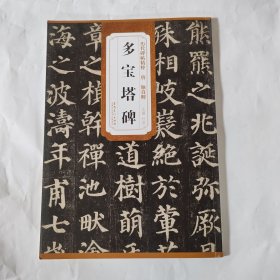 历代碑帖精粹 唐 颜真卿
多宝塔碑
熊羆之兆誕彌厥
殊相岐嶷絕於葷
道樹萌牙
章之楨幹禪池畎澮
海之波濤年甫七